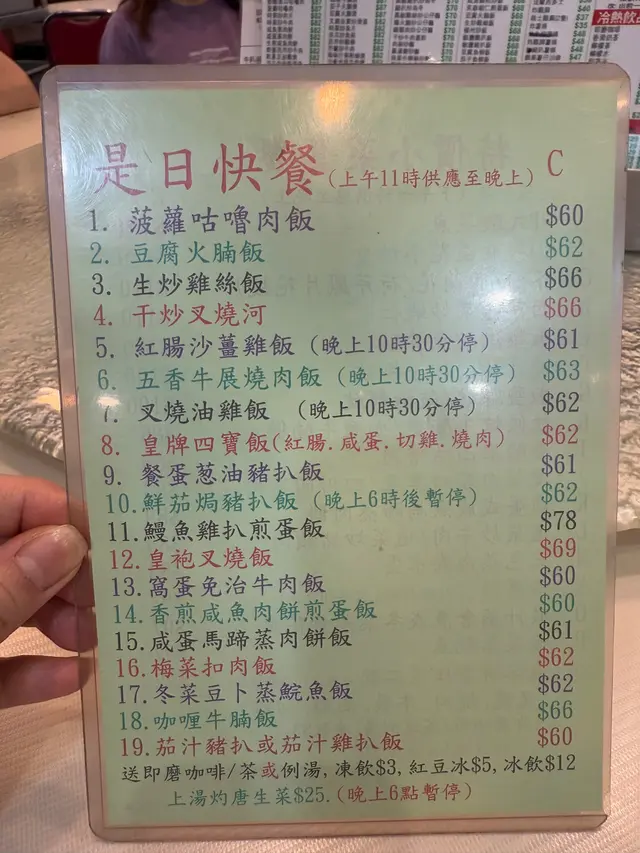 冷熱飲品
是日快餐(上午11時供應至晚上) C
1. 菠蘿咕嚕肉飯 $60
2. 豆腐火腩飯 $62
3. 生炒雞絲飯 $66
4. 干炒叉燒河 $66
5. 紅腸沙薑雞飯 (晚上10時30分停) $61
6. 五香牛展燒肉飯 (晚上10時30分停) $63
7. 叉燒油雞飯 (晚上10時30分停) $62
8. 皇牌四寶飯(紅腸.咸蛋.切雞.燒肉) $62
9. 餐蛋葱油豬扒飯 $61
10.鮮茄焗豬扒飯 (晚上6時後暫停) $62
11.鰻魚雞扒煎蛋飯 $78
12.皇袍叉燒飯 $69
13.窩蛋免治牛肉飯 $60
14.香煎咸魚肉餅煎蛋飯 $60
15.咸蛋馬蹄蒸肉餅飯 $61
16.梅菜扣肉飯 $62
17.冬菜豆卜蒸鯇魚飯 $62
18.咖喱牛腩飯 $66
19.茄汁豬扒或茄汁雞扒飯 $60
送即磨咖啡/茶或例湯,凍飲$3,紅豆冰$5,冰飲$12
上湯灼唐生菜$25.(晚上6點暫停)